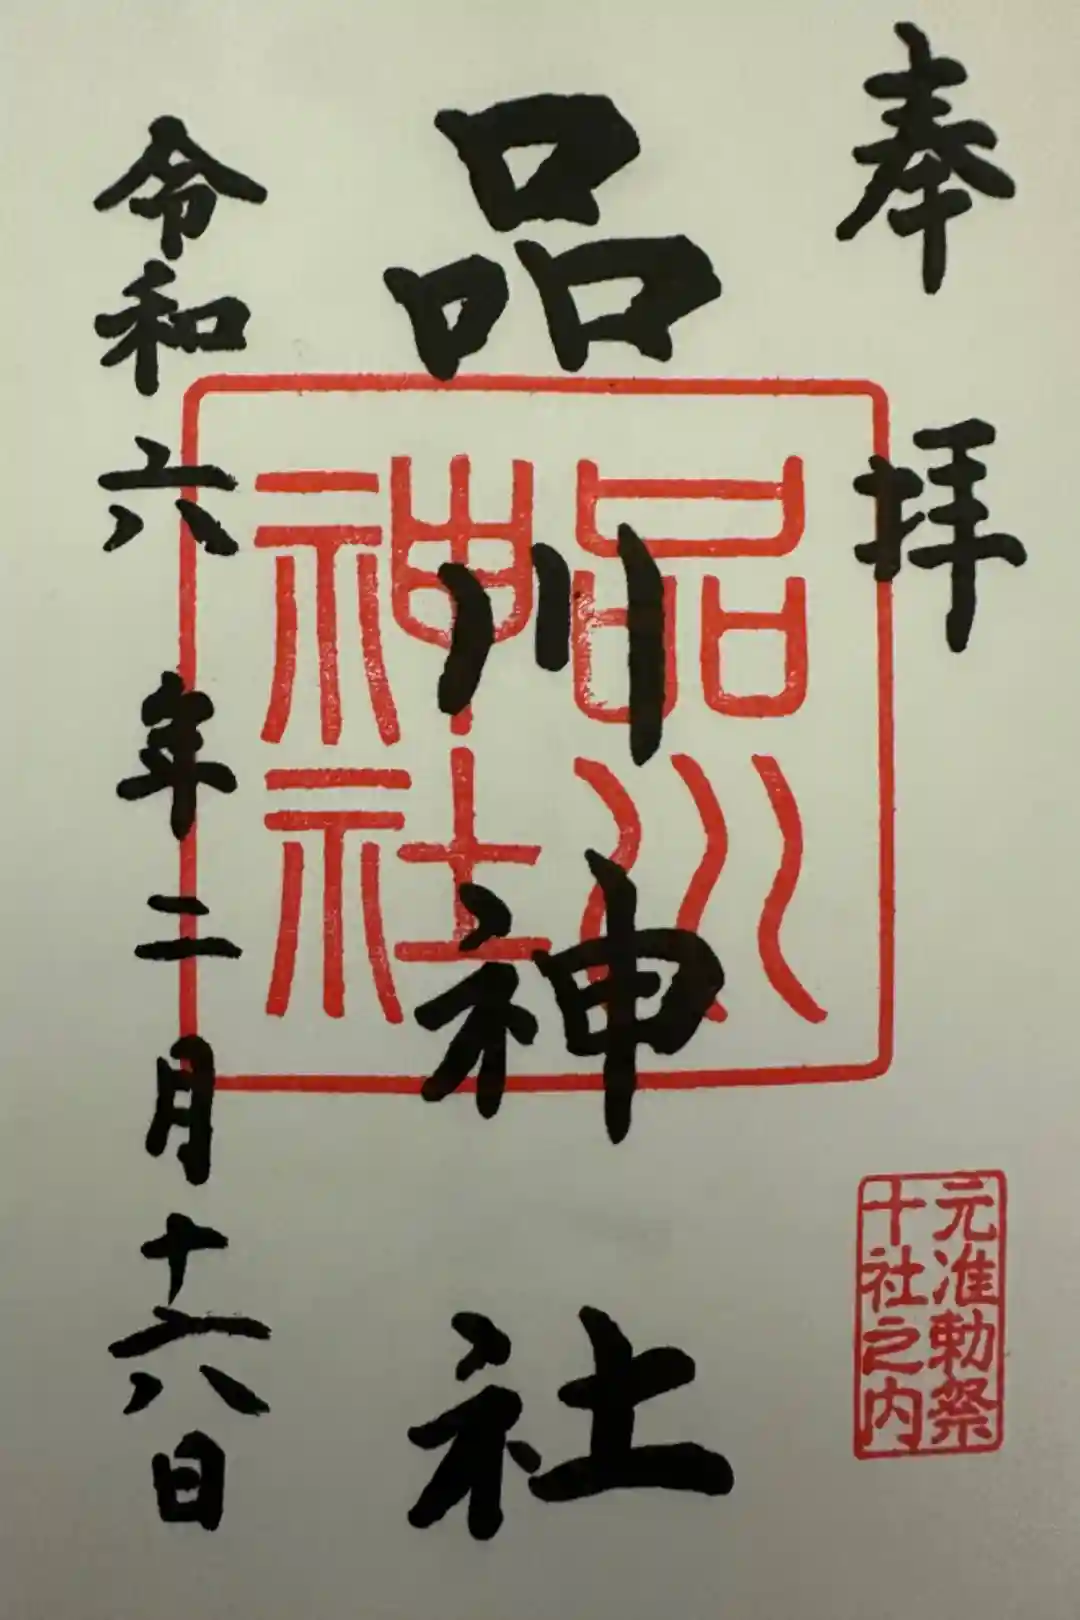 奉拝
元准勅祭
十社之内
品川神社
品川
神社
令和六年二月十六日